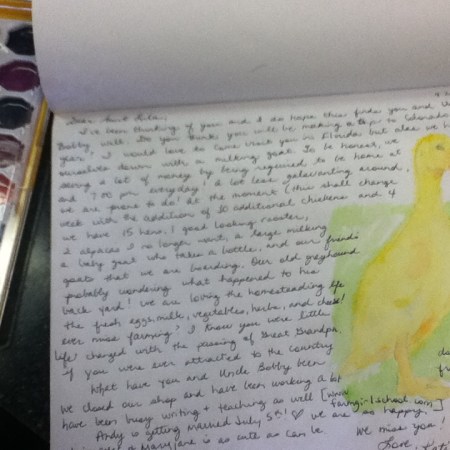 Dear Aunt Lila,
I've been thinking of you and I do hope this finds you and Uncle
Bobby well. Do you think you will be making a trip to Colorado
year? I would love to come visit you in Florida but alas we
ourselves down with a milking goat. To be honest, we
saving a lot of money by being required to be home at
and 7:00 pm everyday! A lot less galavanting around,
we are prone to do! At the moment (this shall change
week with the addition of 30 additional chickens and 4
we have 15 hens, 1 good looking rooster,
2 alpacas I no longer want, a large milking
a baby goat who takes a bottle, and our friend's
goats that we are boarding. Our old greyhound
probably wondering what happened to his
back yard! We are loving the homesteading life
the fresh eggs, milk, vegetables, herbs, and cheese!
ever miss farming? I know you were little
life changed with the passing of Great Grandpa.
if you were ever attracted to the country
What have you and Uncle Bobby been
We closed our shop and have been working a lot
have been busy writing + teaching as well [www.
farmgirlschool.com]
Andy is getting married July 5th! ♡ We are so happy.
Maryjane is as cute as can be.
We miss you!
Love,